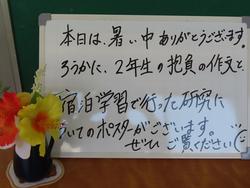 本日は、暑い中ありがとうございます。
ろうかに、2年生の抱負の作文と
宿泊学習で行った研究に
ついてのポスターがございます。
ぜひ ご覧ください